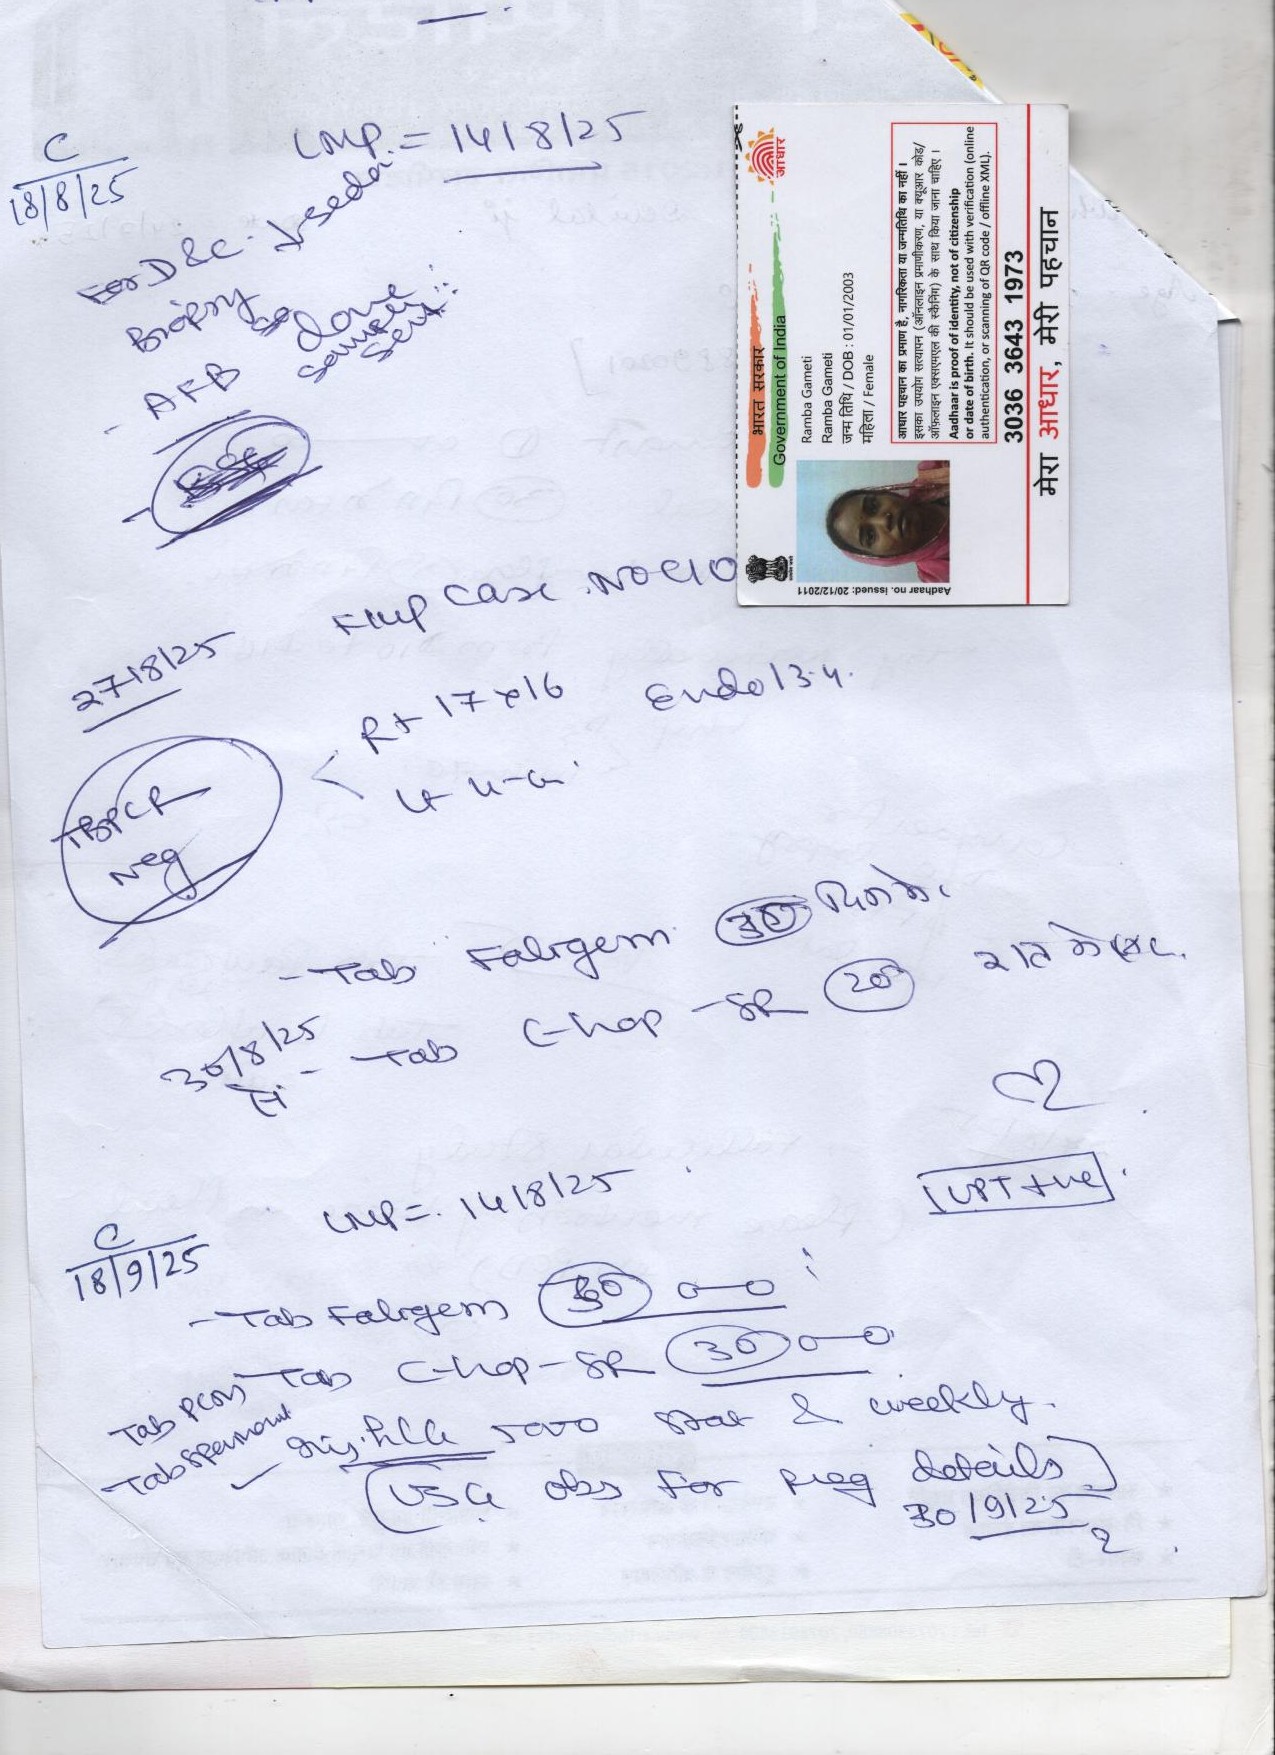 C
18/8/25
LMP = 14/8/25
For D&C
Biopsy
done
AFB
sample
sent
भारत सरकार
Government of India
Ramba Gameti
Ramba Gameti
जन्म तिथि / DOB : 01/01/2003
महिला / Female
आधार पहचान का प्रमाण है, नागरिकता या जन्मतिथि का नहीं ।
इसका उपयोग सत्यापन (ऑनलाइन प्रमाणीकरण, या क्यूआर कोड/
ऑफ़लाइन एक्सएमएल की स्कैनिंग) के साथ किया जाना चाहिए ।
Aadhaar is proof of identity, not of citizenship
or date of birth. It should be used with verification (online
authentication, or scanning of QR code / offline XML).
3036 3643 1973
मेरा आधार, मेरी पहचान
आधार
Aadhaar no. issued: 20/12/2011
27/8/25
case
Rt 17x16
Endo 13.4
TBPCR
Neg
- Tab Foligem 30
30/8/25
से
- Tab C-hop-SR 20
UPT +ve
C
18/9/25
LMP = 14/8/25
- Tab Foligem 30
- Tab C-hop-SR 30
Tab
Tab
Inj. hCG 5000 stat & weekly
(USG obs for preg details)
30/9/25